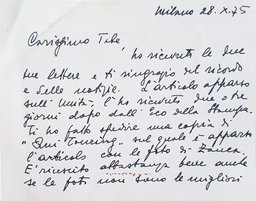 Milano 28.X.75
Carissimo Tebe
ho ricevuto le due
tue lettere e ti ringrazio del ricordo
e delle notizie. L'articolo apparso
sull'Unità, l'ho ricevuto due o tre
giorni dopo dall'Eco della Stampa.
Ti ho fatto spedire una copia di
"Qui Touring" sul quale è apparso
l'articolo con le foto di Zanca.
E' riuscito abbastanza bene anche
se le foto non sono le migliori